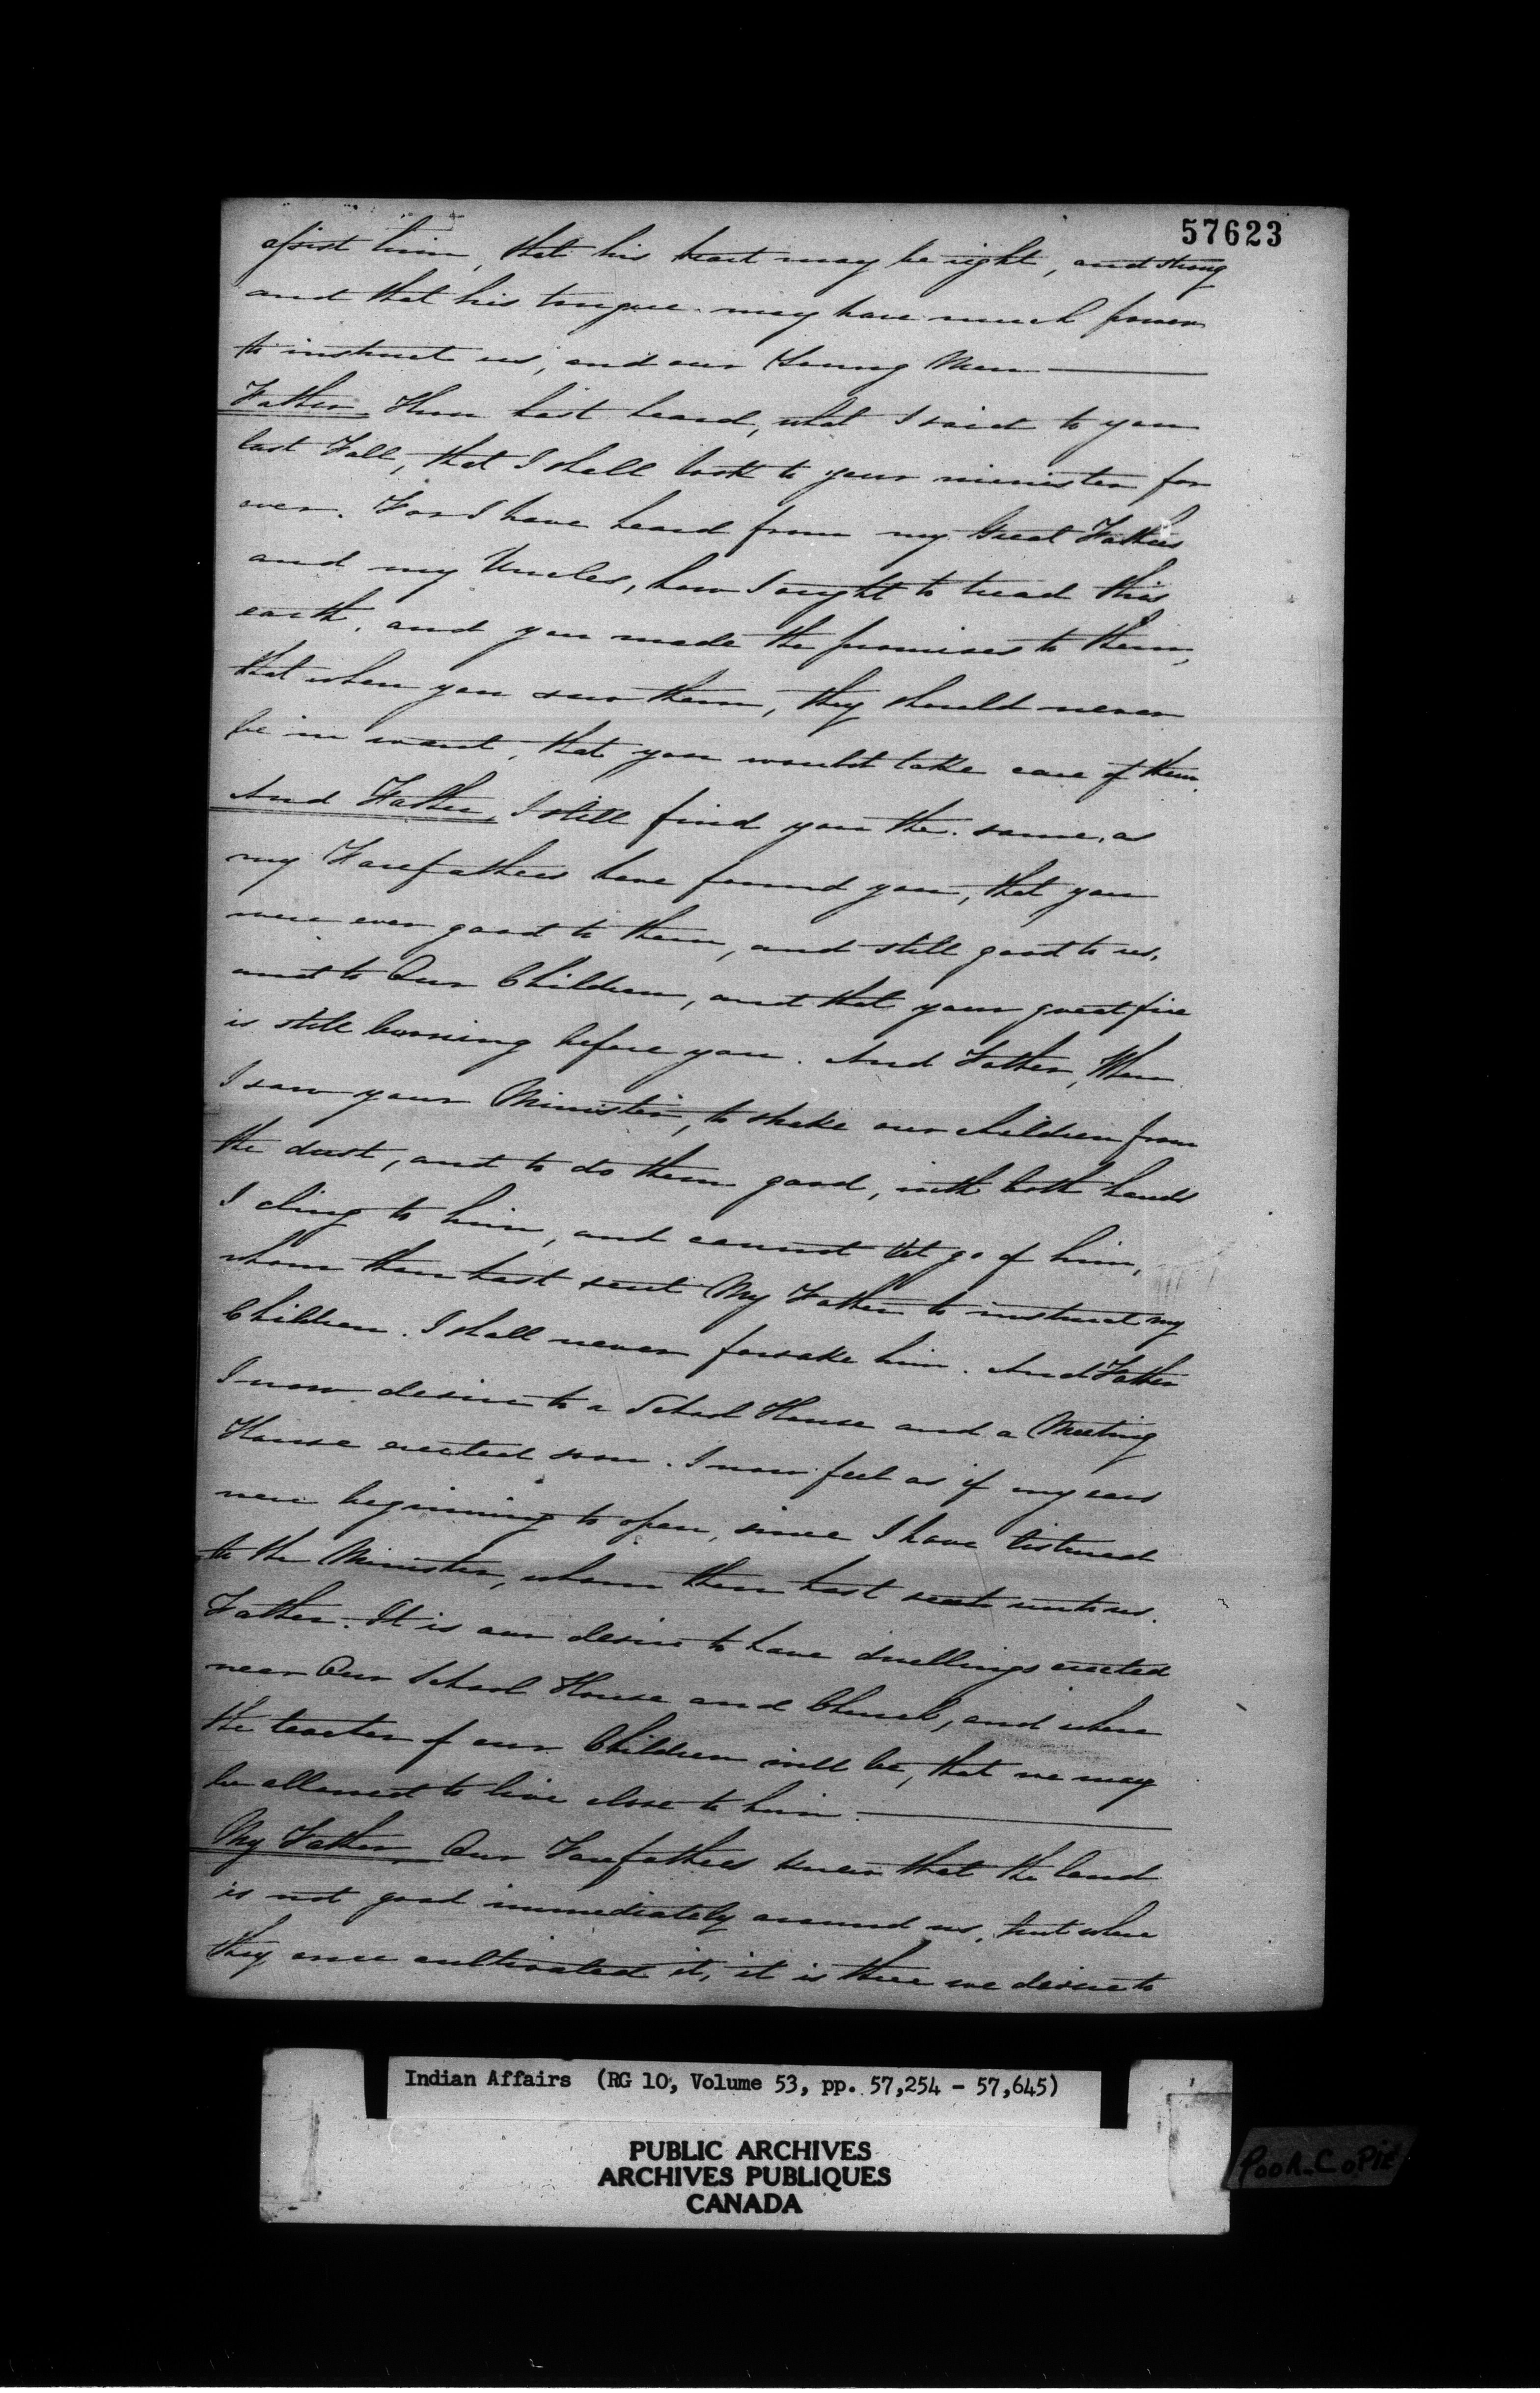 57623
assist him, that his heart may be right, and strong
and that his tongue may have much power
to instruct us, and our Young Men
Father, Thou hast heard, what I said to you
last Fall, that I shall look to your minister for
ever. For I have heard from my Great Fathers
and my Uncles, how I ought to tread this
earth, and you made the promises to them,
that when you saw them, they should never
be in want, that you would take care of them.
And Father, I still find you the same, as
my Forefathers have found you, that you
were ever good to them, and still good to us,
and to Our Children, and that your great fire
is still burning before you. And Father, When
I saw your Minister, to shake our children from
the dust, and to do them good, with both hands
I cling to him, and cannot let go of him,
whom thou hast sent My Father to instruct my
Children. I shall never forsake him. And Father
I now desire to a School House and a Meeting
House erected soon. I now feel as if my ears
were beginning to open, since I have listened
to the Minister, whom thou hast sent unto us.
Father. It is our desire to have dwellings erected
near Our School House and Church, and where
the teacher of our Children will be, that we may
be allowed to live close to him.
My Father, Our Forefathers knew that the land
is not good immediately around us, but where
they once cultivated it, it is there we desire to
Indian Affairs (RG 10, Volume 53, pp. 57,254 - 57,645)
PUBLIC ARCHIVES
ARCHIVES PUBLIQUES
CANADA
POOR COPIE